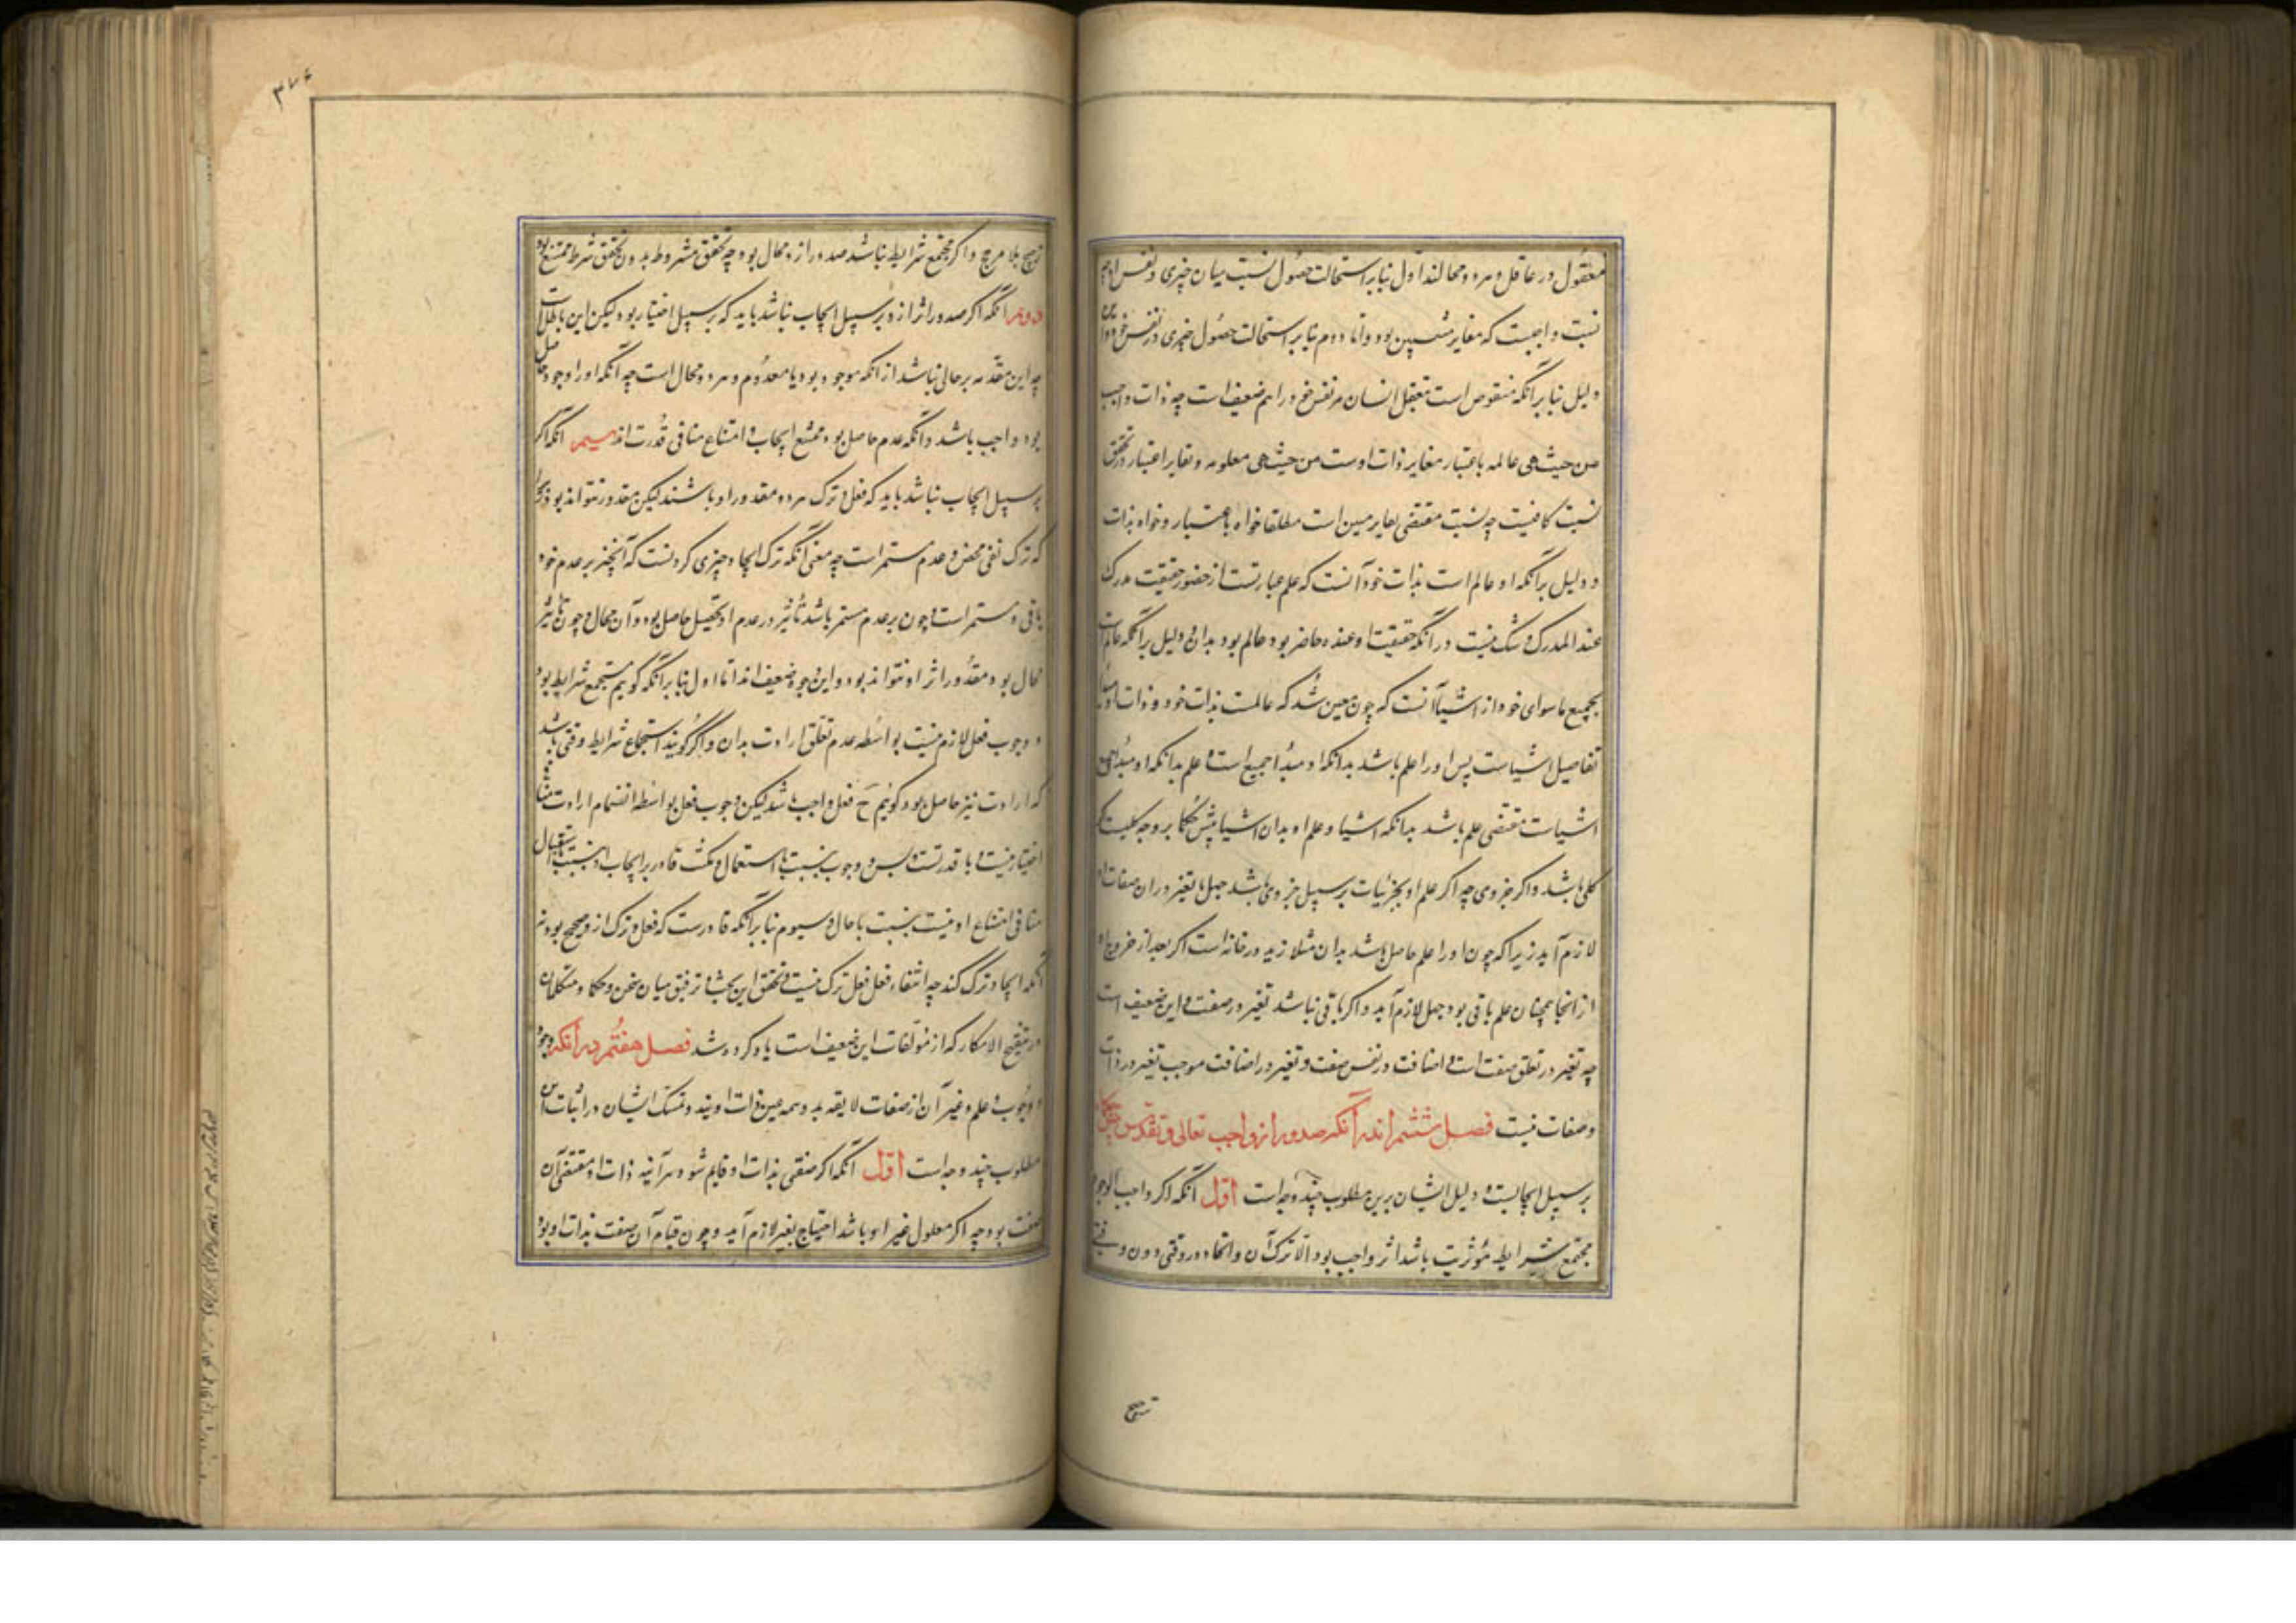 معقول در عاقل و هر دو محالند اول بنابر استحالت حصول نسبت میان چیزی و نفس او چه
نسبت واجبست که مغایر منتسبین بود و اما دوم بنابر استحالت حصول چیزی در نفس خود و این
دلیل بنابر آنکه منقوض است بتعقل انسان مر نفس خود را هم ضعیف است چه ذات واجب
من حیث هی عالمه باعتبار مغایر ذات اوست من حیث هی معلومه و تغایر اعتبار در تحقق
نسبت کافیست چه نسبت مقتضی تغایر است مطلقا خواه باعتبار و خواه بذات
و دلیل برآنکه او عالم است بذات خود آنست که علم عبارتست از حضور حقیقت مدرک
عند المدرک و شک نیست در آنکه حقیقت او عنده حاضر بود عالم بود بدان و دلیل برآنکه عالم است
بجمیع ماسوای خود از اشیا آنست که چون معین شد که عالمست بذات خود و ذات او مبدأ
تفاصیل اشیاست پس او را علم باشد بدانکه او مبدأ جمیع است و علم بدانکه او مبدأ جمیع
اشیاست مقتضی علم باشد بدانکه اشیا و علم او بدان اشیا پیش حکما بر وجه کلیست که
کلی باشد و اگر جزوی چه اگر علم او بجزئیات بر سبیل جزوی باشد جهل یا تغیر در آن صفات او
لازم آید زیرا که چون او را علم حاصل باشد بدان مثلا زید در خانه است اگر بعد از خروج او
از آنجا همچنان علم باقی بود جهل لازم آید و اگر باقی نباشد تغیر در صفت و این ضعیف است
چه تغیر در تعلق صفت است و اضافت در نفس صفت و تغیر در اضافت موجب تغیر در ذات
و صفات نیست فصل ششم اندر آنکه صدور از واجب تعالی و تقدس پیش حکما
بر سبیل ایجابست و دلیل ایشان برین مطلوب چند وجه است اول آنکه اگر واجب الوجود
مجتمع شرایط مؤثریت باشد اثر واجب بود و الا ترک آن و اتحاد در وقتی دون وقتی
ترجیح
۳۷۶
ترجیح بلا مرجح و اگر مجتمع شرایط نباشد صدور ازو محال بود چه تحقق مشروط بدون تحقق شرط ممتنع بود
دوم آنکه اگر صدور اثر ازو بر سبیل ایجاب نباشد باید که بر سبیل اختیار بود لیکن این باطل است
چه این مقدمه بر حالی نباشد از آنکه موجود بود یا معدوم و هر دو محال است چه آنکه او را وجود حاصل
بود واجب باشد و آنکه عدم حاصل بود ممتنع و ایجاب و امتناع منافی قدرت اند سیم آنکه اگر
بر سبیل ایجاب نباشد باید که فعل و ترک هر دو مقدور او باشند لیکن مقدور نتواند بود
که ترک نفی محض و عدم مستمر است چه معنی آنکه ترک ایجاد چیزی کرد نست که آنچیز بر عدم خود
باقی و مستمر است و چون بر عدم مستمر باشد تأثیر در عدم او تحصیل حاصل بود و آن محال و چون تأثیر
محال بود مقدور اثر او نتواند بود و این وجوه ضعیف اند اما اول بنابر آنکه گوییم مستجمع شرایط بود
و وجوب فعل لازم نیست بواسطه عدم تعلق ارادت بدان و اگر گویند استجماع شرایط وقتی باشد
که ارادت نیز حاصل بود گوئیم ح فعل واجب باشد لیکن وجوب فعل بواسطه انضمام ارادت
اختیار نیست و با قدرتست پس وجوب بنسبت با استعمال
منافی امتناع او نیست بنسبت با حال و سیوم بنابر آنکه قادرست که فعل و ترک ازو صحیح بود نه
آنکه ایجاد ترک کند چه انتفاء فعل فعل ترک نیست و تحقق این بحث و توفیق میان سخن حکما و متکلمان
در تنقیح الافکار که از مؤلفات این ضعیف است یاد کرده شد فصل هفتم در آنکه وجود
و وجوب و علم و غیر آن از صفات لایقه بدو همه عین ذات اویند و تمسک ایشان در اثبات این
مطلوب چند وجه است اول آنکه اگر صفتی بذات او قایم شود هرآینه ذات او مقتضی آن
صفت بود چه اگر معلول غیر او باشد احتیاج بغیر لازم آید و چون قیام آن صفت بذات او بود